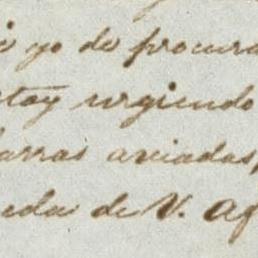 yo de procura
stoy urgiendo
arras aviadas,
eda de V. Af